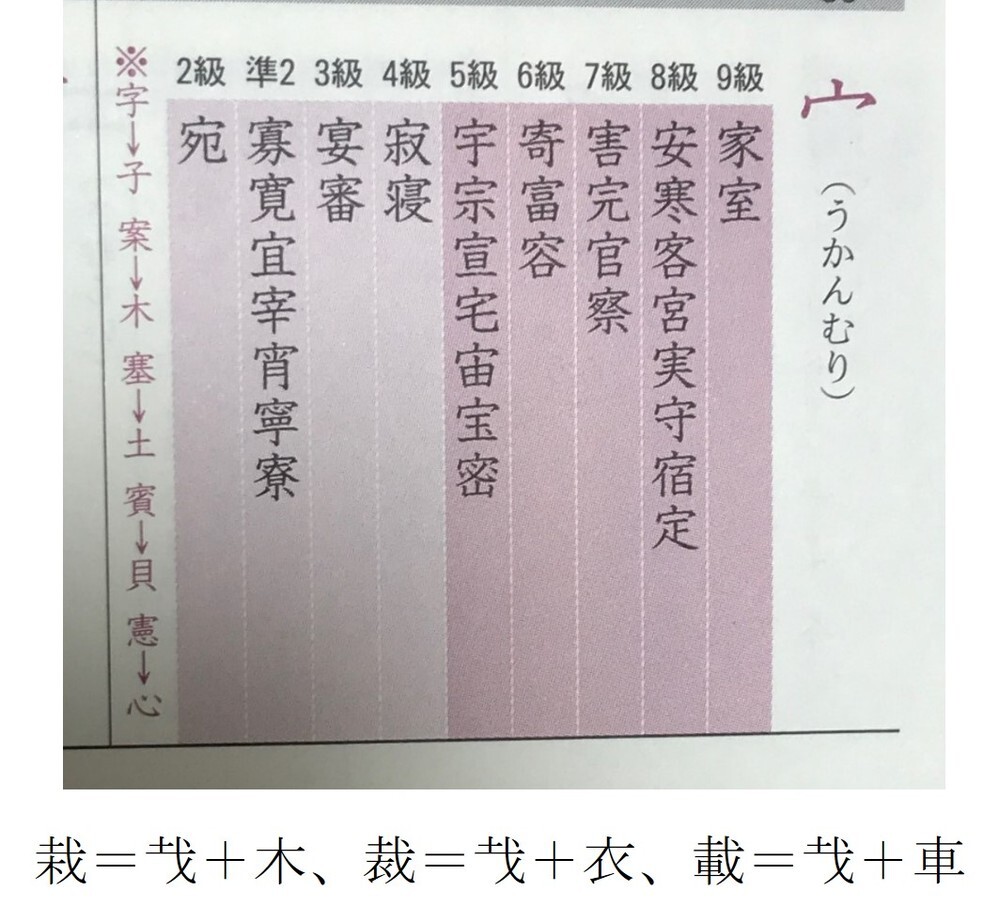 宀(うかんむり)
9級 家室
8級 安寒客宮実守宿定
7級 害完官察
6級 寄富容
5級 宇宗宣宅宙宝密
4級 寂寝
3級 宴審
準2 寡寛宜宰宵寧寮
2級 宛
※字→子 案→木 塞→土 賓→貝 憲→心
栽=𢦏+木、裁=𢦏+衣、載=𢦏+車